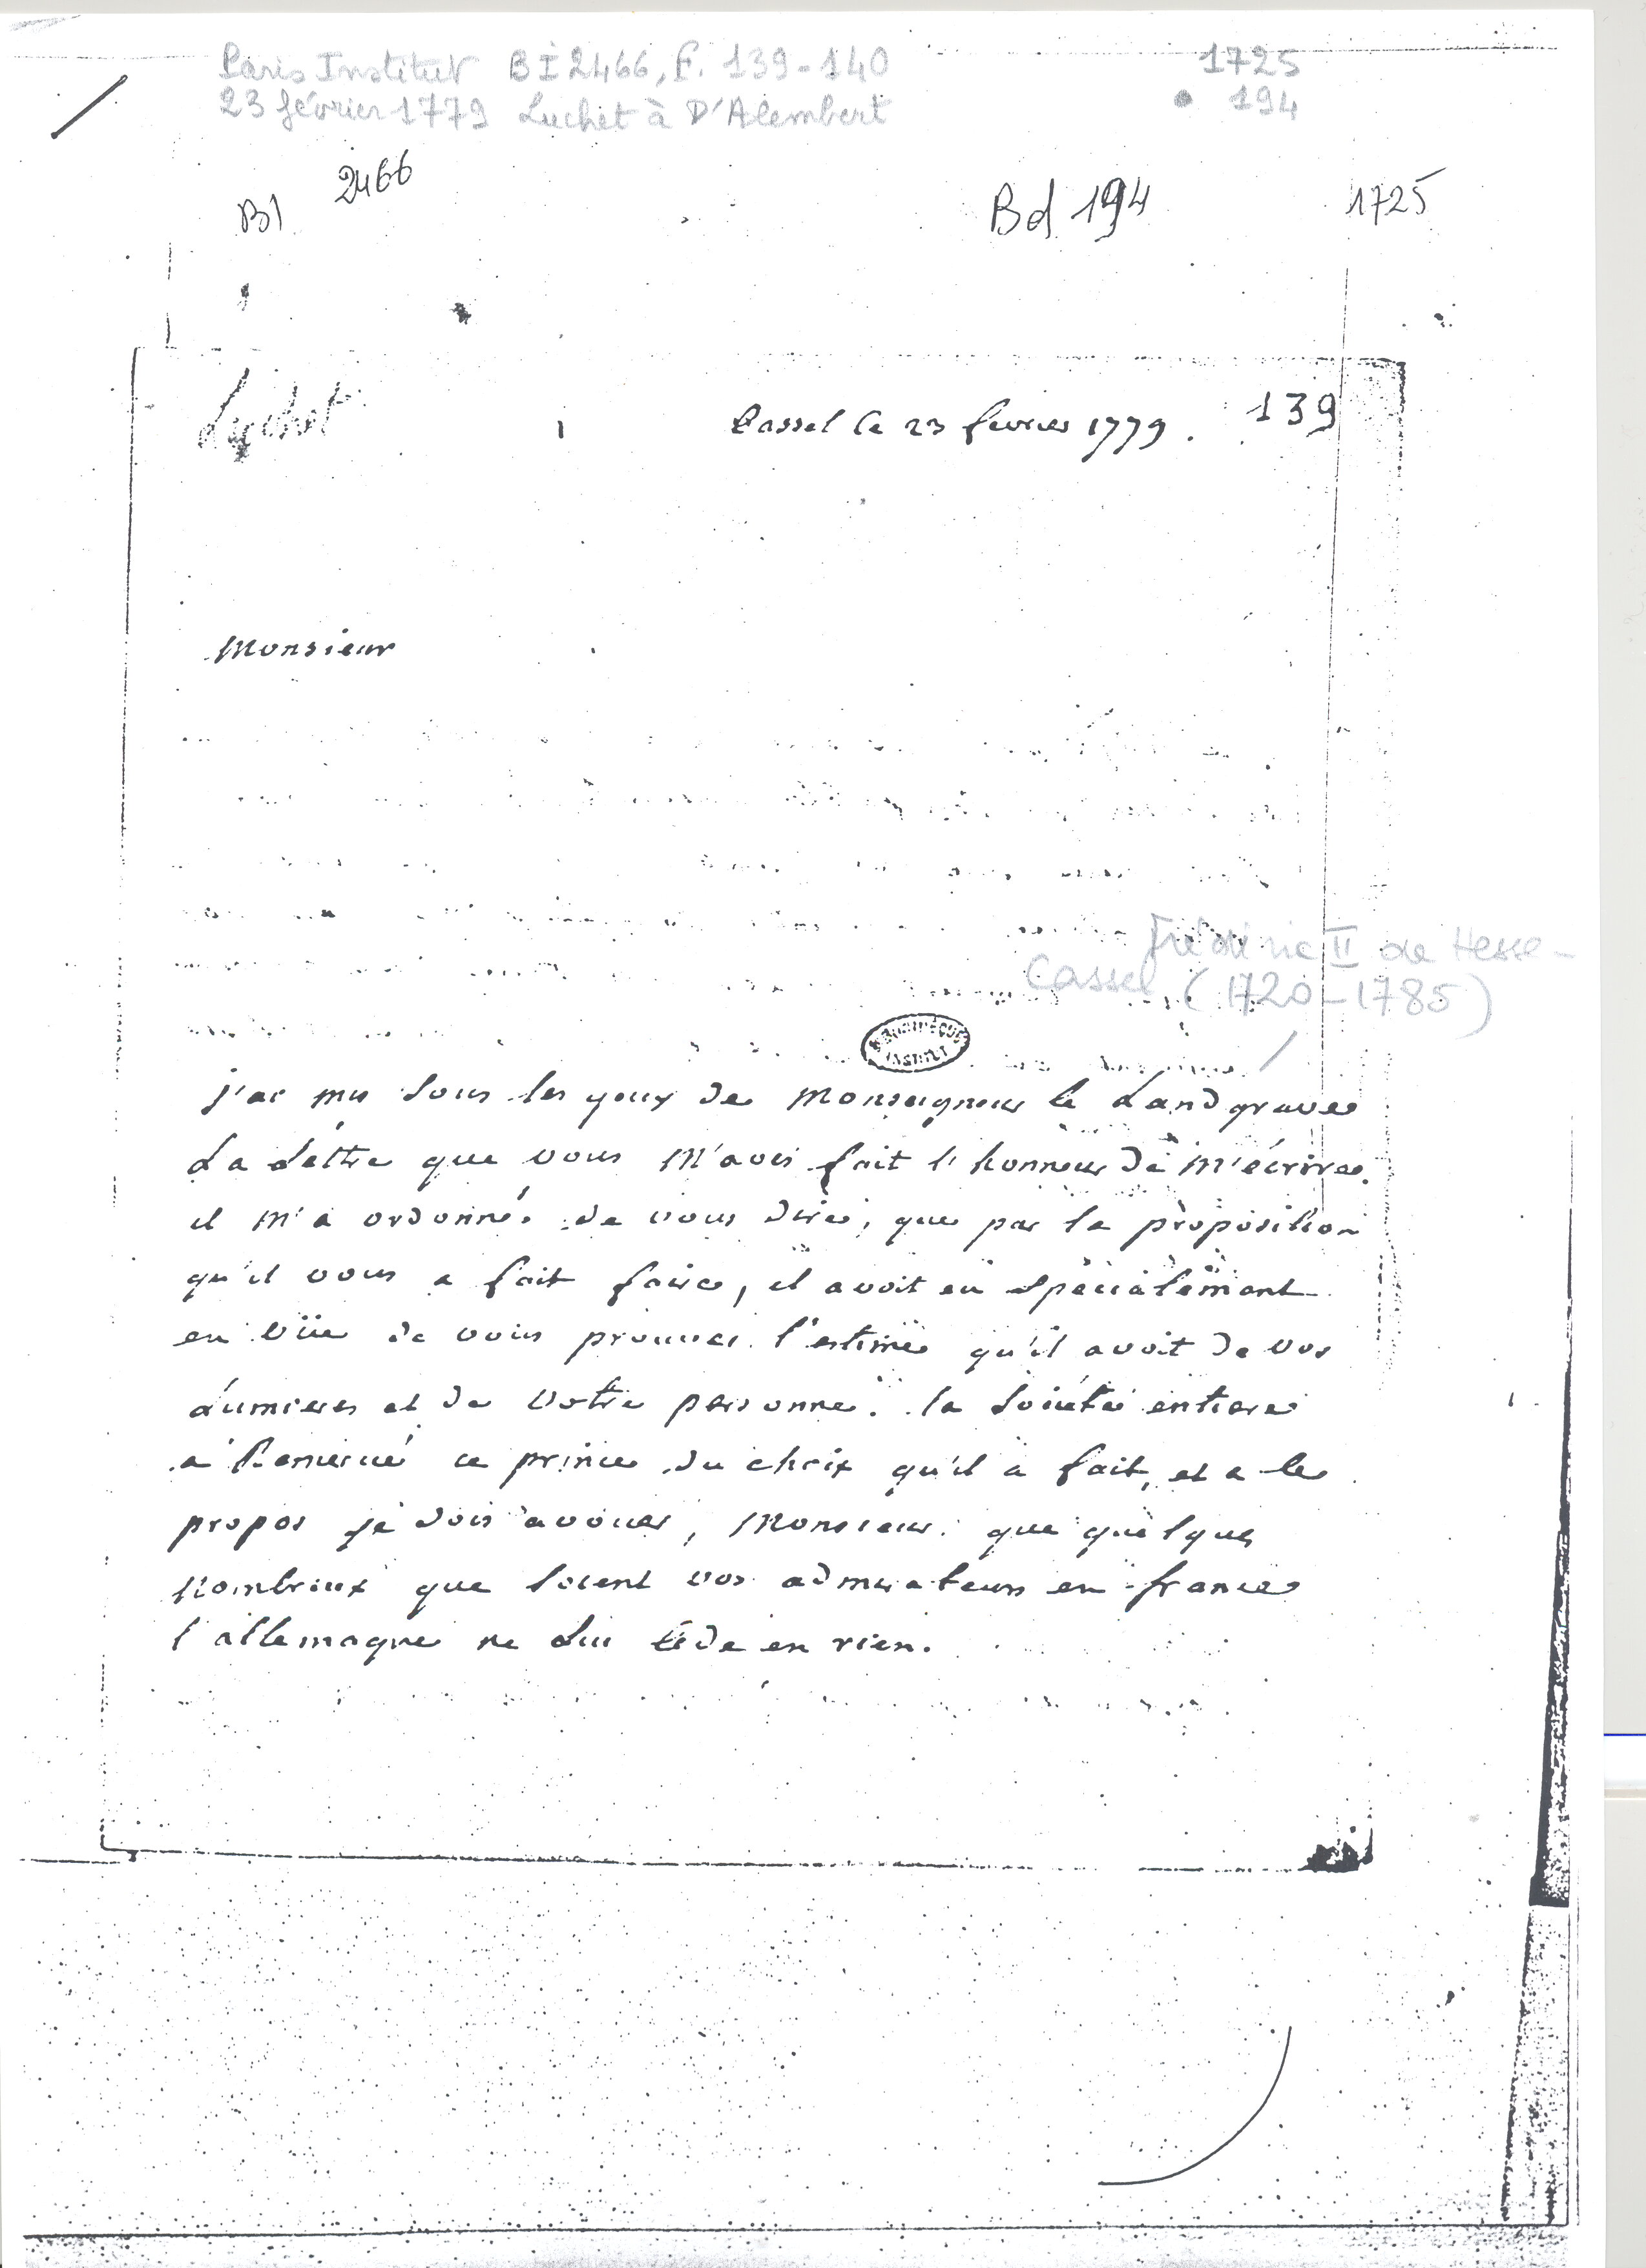 Paris Institut BI 2466, f. 139-140 1725
23 février 1779 Luchet à D'Alembert • 194
BI 2466 Bd 194 1725
Luchet Cassel le 23 fevrier 1779. 139
Monsieur
Frédéric II de Hesse-
Cassel (1720-1785)
BIBLIOTHÈQUE
INSTITUT
j'ai mis sous les yeux de Monseigneur le Landgrave
La Lettre que vous m'avés fait l'honneur de m'écrire.
il m'a ordonné de vous dire, que par la proposition
qu'il vous a fait faire, il avoit eu spécialement
en vüe de vous prouver l'estime qu'il avoit de vos
Lumieres et de votre personne. la société entiere
a Remercié ce prince du choix qu'il a fait, et a ce
propos je dois avouer, Monsieur que quelques
Nombreux que soient vos admirateurs en france
l'allemagne ne Lui cède en rien.